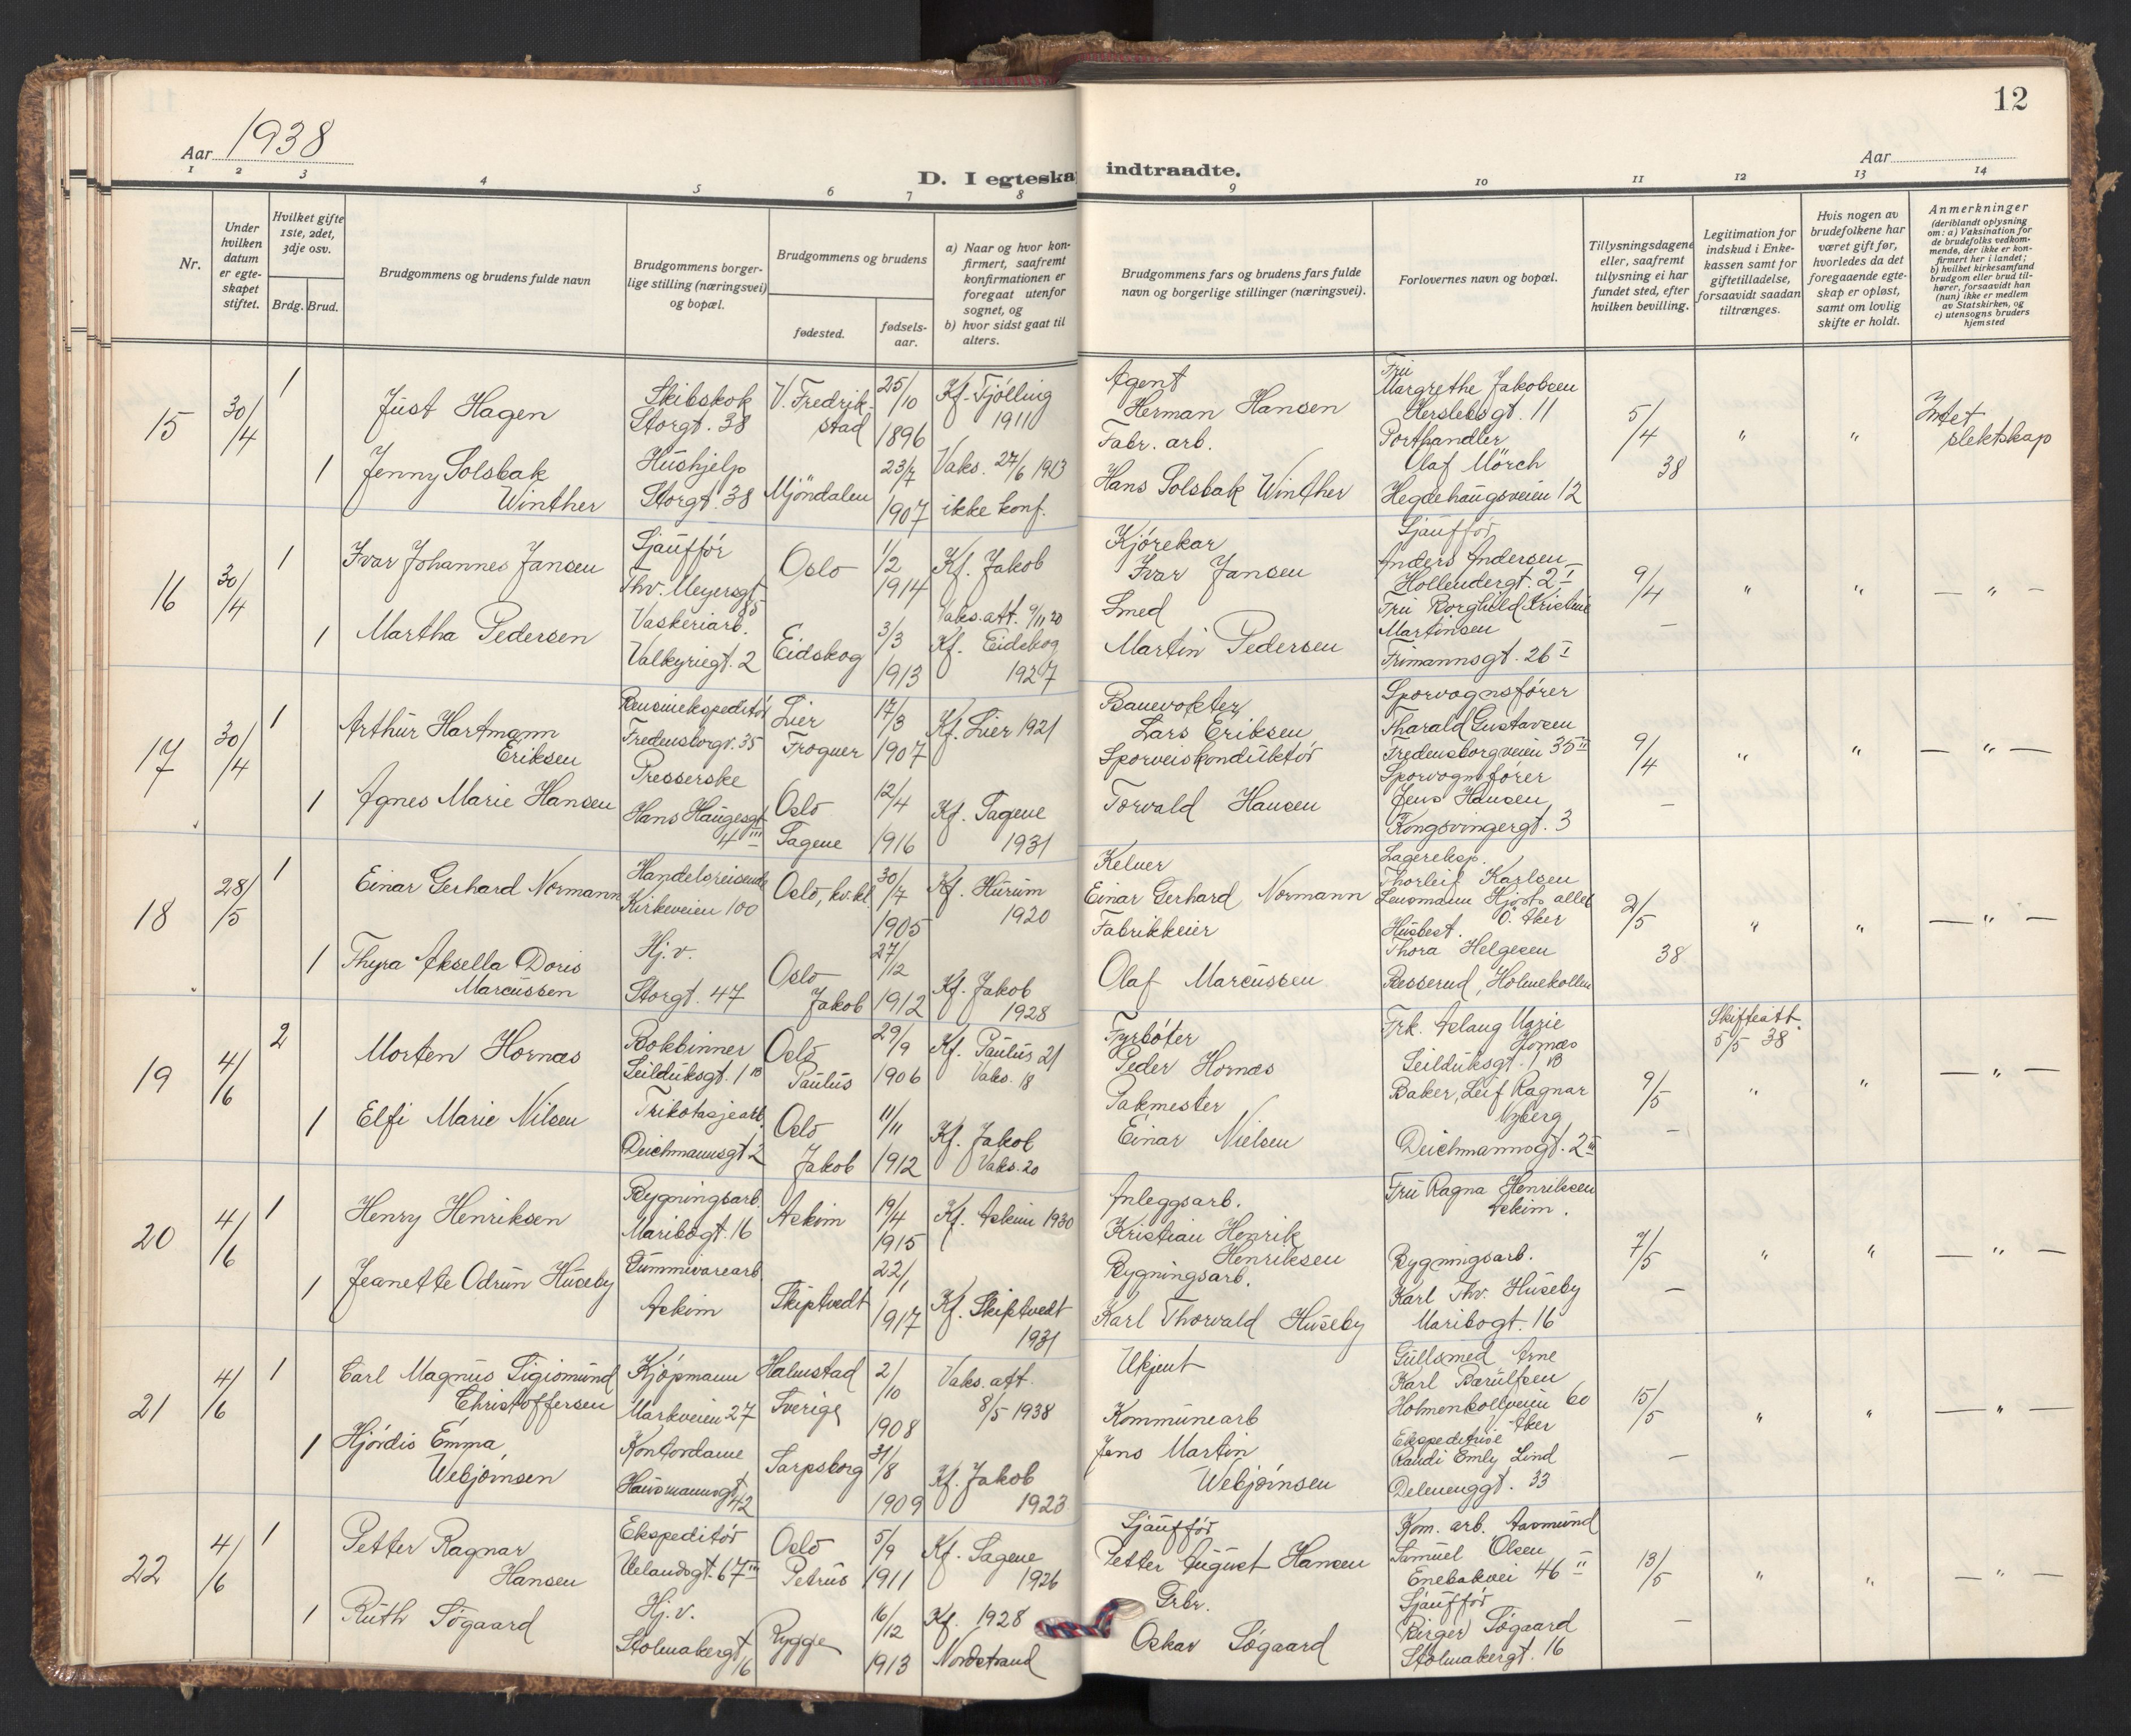 12
Aar 1938
Aar
D. I egteska
indtraadte.
1 2 3 4 5 6 7 8 9 10 11 12 13 14
Nr.
Under
hvilken
datum
er egte-
skapet
stiftet.
Hvilket gifte
1ste, 2det,
3dje osv.
Brdg.
Brud.
Brudgommens og brudens fulde navn
Brudgommens borger-
lige stilling (næringsvei)
og bopæl.
Brudgommens og brudens
fødested.
fødsels-
aar.
a) Naar og hvor kon-
firmert, saafremt
konfirmationen er
foregaat utenfor
sognet, og
b) hvor sidst gaat til
alters.
Brudgommens fars og brudens fars fulde
navn og borgerlige stillinger (næringsvei).
Forlovernes navn og bopæl.
Tillysningsdagene
eller, saafremt
tillysning ei har
fundet sted, efter
hvilken bevilling.
Legitimation for
indskud i Enke-
kassen samt for
giftetilladelse,
forsaavidt saadan
tiltrænges.
Hvis nogen av
brudefolkene har
været gift før,
hvorledes da det
foregaaende egte-
skap er opløst,
samt om lovlig
skifte er holdt.
Anmerkninger
(deriblandt oplysning
om: a) Vaksination for
de brudefolks vedkom-
mende, der ikke er kon-
firmert her i landet;
b) hvilket kirkesamfund
brudgom eller brud til-
hører, forsaavidt han
(hun) ikke er medlem
av Statskirken, og
c) utensogns bruders
hjemsted
15
30/4
1
Just Hagen
Skibskok
Storgt. 38
V. Fredrik-
stad
25/10
1896
Kf. Tjølling
1911
Agent
Herman Hansen
Fru
Margrethe Jakobsen
Herslebsgt. 11
5/4
38
"
"
Intet
slektskap
1
Jenny Solsbak
Winther
Hushjelp
Storgt. 38
Mjöndalen
23/7
1907
Vaks. 27/6 1913
ikke konf.
Fabr. arb.
Hans Solsbak Winther
Porthandler
Olaf Mörch
Hegdehaugsveien 12
16
30/4
1
Ivar Johannes Jansen
Sjauffør
Thv. Meyersgt.
85
Oslo
1/2
1914
Kf. Jakob
Kjørekar
Ivar Jansen
Sjauffør
Anders Andersen
Hollendergt. 2 I
9/4
–
"
"
— " —
1
Martha Pedersen
Vaskeriarb.
Valkyriegt. 2
Eidskog
3/3
1913
Vaks.att. 9/11 20
Kf. Eidskog
1927
Smed
Martin Pedersen
Fru Borghild Kristine
Martinsen
Frimannsgt. 26 I
17
30/4
1
Arthur Hartmann
Eriksen
Bensinekspeditør
Fredensborgv. 35
Lier
Frogner
17/3
1907
Kf. Lier 1921
Banevokter
Lars Eriksen
Sporvognsfører
Tharald Gustavsen
Fredensborgveien 35 II
9/4
–
"
"
— " —
1
Agnes Marie Hansen
Presserske
Hans Haugesgt.
4 III
Oslo
Sagene
12/4
1916
Kf. Sagene
1931
Sporveiskonduktør
Torvald Hansen
Sporvognsfører
Jens Hansen
Kongsvingergt. 3
18
28/5
1
Einar Gerhard Normann
Handelsreisende
Kirkeveien 100
Oslo, kv.kl.
30/7
1905
Kf. Hurum
1920
Kelner
Einar Gerhard Normann
Lagereksp.
Thorleif Karlsen
Lensmann Hjorts allé
Ö. Aker
2/5
38
"
"
— " —
1
Thyra Aksella Doris
Marcussen
Hj. v.
Storgt. 47
Oslo
Jakob
27/12
1912
Kf. Jakob
1928
Fabrikkeier
Olaf Marcussen
Husbest.
Thora Helgesen
Besserud, Holmekollen
19
4/6
2
Morten Hornæs
Bokbinner
Seilduksgt. 1 B
Oslo
Paulus
29/9
1906
Kf. Paulus 21
Vaks. 18
Fyrbøter
Peder Hornæs
Frk. Aslaug Marie
Hornæs
Seilduksgt. 1 B
9/5
–
Skifteatt.
5/5 38
"
"
— " —
1
Elfi Marie Nilsen
Trikotasjearb.
Deichmannsgt 2
Oslo
Jakob
11/11
1912
Kf. Jakob
Vaks. 20
Pakmester
Einar Nielsen
Baker, Leif Ragnar
Nyberg
Deichmannsgt. 2 III
20
4/6
1
Henry Henriksen
Bygningsarb.
Maribogt. 16
Askim
19/4
1915
Kf. Askim 1930
Anleggsarb.
Kristian Henrik
Henriksen
Fru Ragna Henriksen
Askim.
7/5
–
"
"
— " —
1
Jeanette Odrun Huseby
Gummivarearb.
Askim
Skiptvedt
22/1
1917
Kf. Skiptvedt
1931
Bygningsarb.
Karl Thorvald Huseby
Bygningsarb.
Karl Thv. Huseby
Maribogt. 16
21
4/6
1
Carl Magnus Sigismund
Christoffersen
Kjøpmann
Markveien 27
Halmstad
Sverige
2/10
1908
Vaks. att.
8/5 1938
Ukjent
Gullsmed Arne
Karl Bærulfsen
Holmenkollveien 60
Aker
15/5
–
"
"
— " —
1
Hjørdis Emma
Webjørnsen
Kontordame
Hausmannsgt.
42
Sarpsborg
31/8
1909
Kf. Jakob
1923
Kommunearb
Jens Martin
Webjørnsen
Ekspeditrise
Randi Emly Lind
Delenenggt. 33
22
4/6
1
Petter Ragnar
Hansen
Ekspeditør
Uelandsgt. 67 III
Oslo
Petrus
5/9
1911
Kf. Sagene
1926
Sjauffør
Petter August Hansen
Kom. arb. Aasmund
Samuel Olsen
Enebakvei 46 II
13/5
–
"
"
— " —
1
Ruth Søgaard
Hj. v.
Stolmakergt.
16
Rygge
16/12
1913
Kf. 1928
Nordstrand
Grbr.
Oskar Søgaard
Sjauffør
Birger Søgaard
Stolmakergt. 16